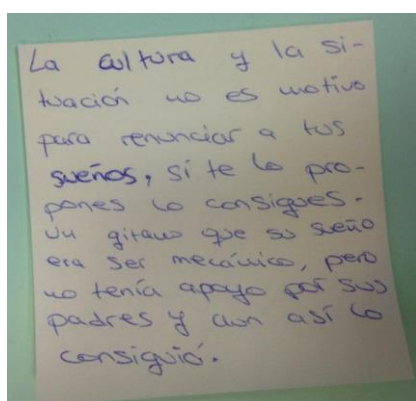 La cultura y la si-
tuación no es motivo
para renunciar a tus
sueños, si te lo pro-
pones lo consigues.
Un gitano que su sueño
era ser mecánico, pero
no tenía apoyo por sus
padres y aun así lo
consiguió.